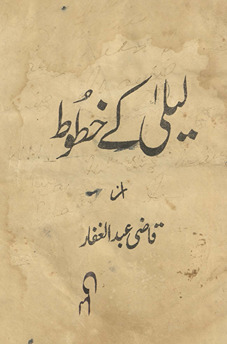 لیلیٰ کے خطوط
از
قاضی عبدالغفار